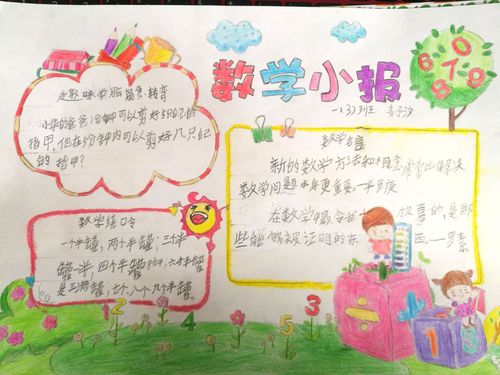 数学小报
一(3)班
趣味 脑筋急转弯
小华的爸爸1分钟可以剪好5只自己的
指甲。他在5分钟内可以剪好几只自己
的指甲?
数学名言
新的数学方法和概念,常常比解决
数学问题本身更重要。—华罗庚
在数学中最令我 欣喜的,是那
些能够被证明的东 西—罗素
数学绕口令
一个半罐,两个半罐;三个半
罐一半,四个半罐
是三满罐,七个、八个、九个半罐。
6
0
9
7
8
9
2
4
5
3
1
3